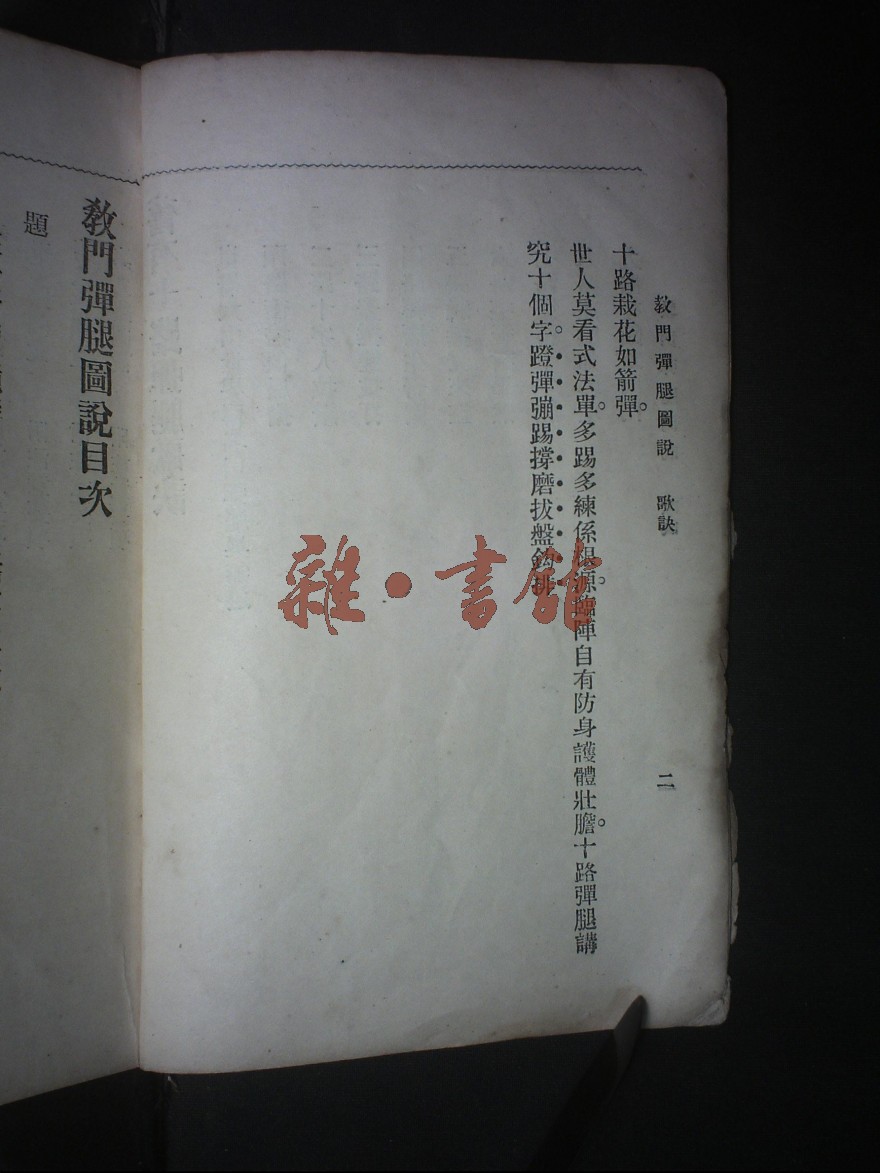 教門彈腿圖說 歌訣 二
十路栽花如箭彈。
世人莫看式法單。多踢多練係根源。臨陣自有防身護體壯膽。十路彈腿講
究十個字。蹬彈彍踢撐磨拔盤鈎排
教門彈腿圖說目次
題
雜·書館